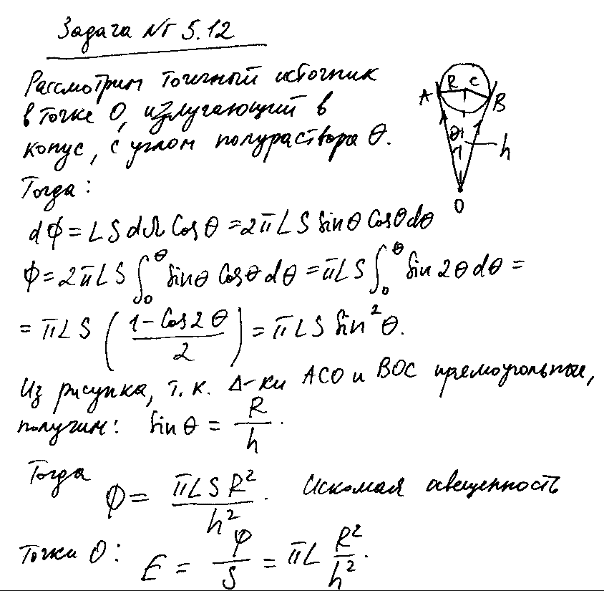 Задача № 5.12
Рассмотрим точечный источник
в точке О, излучающий в
конус, с углом полураствора θ.
Тогда:
dФ = LS dΩ Cosθ = 2πLS Sinθ Cosθ dθ
Ф = 2πLS ∫₀^θ Sinθ Cosθ dθ = πLS ∫₀^θ Sin 2θ dθ =
= πLS ((1 - Cos2θ)/2) = πLS Sin²θ.
Из рисунка, т.к. Δ-ки ACO и BOC прямоугольные,
получим: Sinθ = R/h.
Тогда Ф = πLSR²/h². Искомая освещенность
точки О: E = Ф/S = πL R²/h².
A R C B
θ h
O